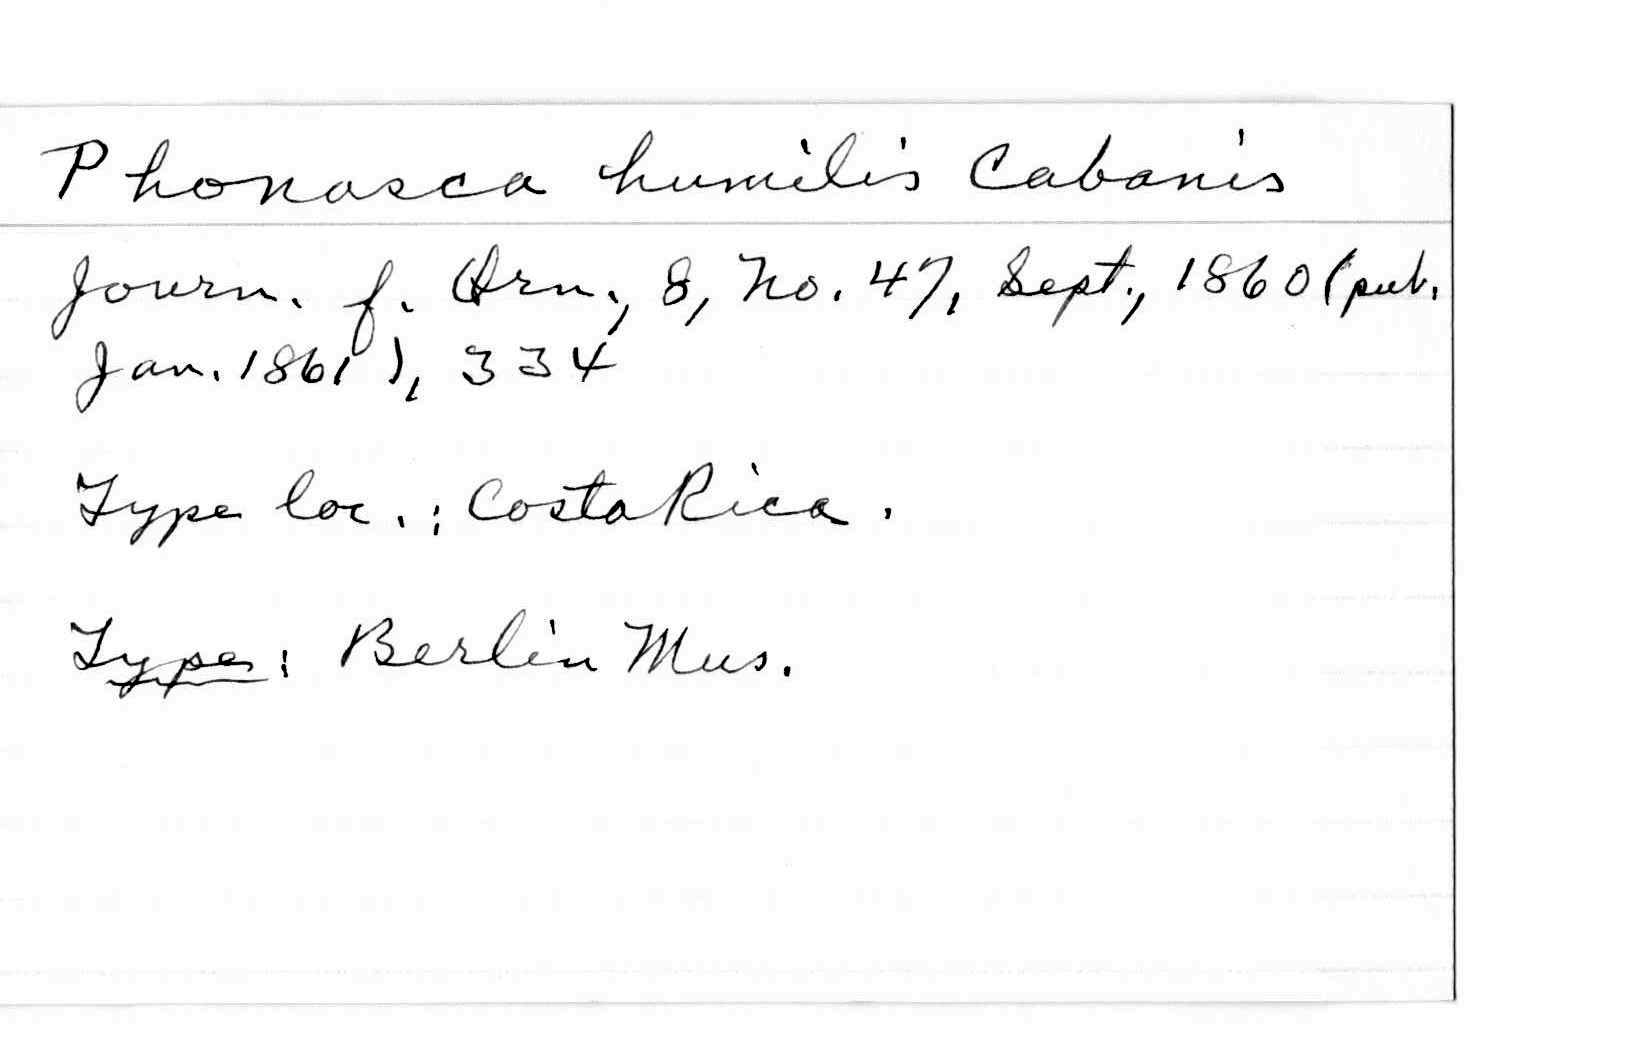 Phonasca humilis Cabanis
Journ. f. Orn., 8, No. 47, Sept., 1860 (pub.
Jan. 1861), 334
Type loc.: Costa Rica.
Type: Berlin Mus.